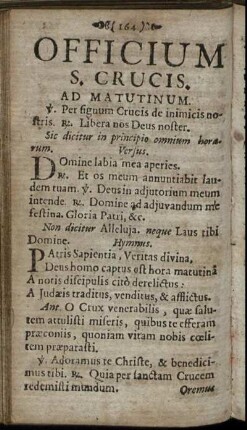 ( 164 )
OFFICIUM
S. CRUCIS.
AD MATUTINUM.
℣. Per signum Crucis de inimicis no-
stris. ℟. Libera nos Deus noster.
Sic dicitur in principio omnium hora-
rum. Versus.
Domine labia mea aperies.
℟. Et os meum annuntiabit lau-
dem tuam. ℣. Deus in adjutorium meum
intende ℟. Domine ad adjuvandum me
festina. Gloria Patri, &c.
Non dicitur Alleluja. neque Laus tibi
Domine. Hymnus.
Patris Sapientia, Veritas divina,
Deus homo captus est hora matutina
A notis discipulis cito derelictus:
A Judæis traditus, venditus, & afflictus.
Ant. O Crux venerabilis, quæ salu-
tem attulisti miseris, quibus te efferam
præconiis, quoniam vitam nobis cœli-
tem præparasti.
℣. Adoramus te Christe, & benedici-
mus tibi. ℟. Quia per sanctam Crucem
redemisti mundum. Oremus